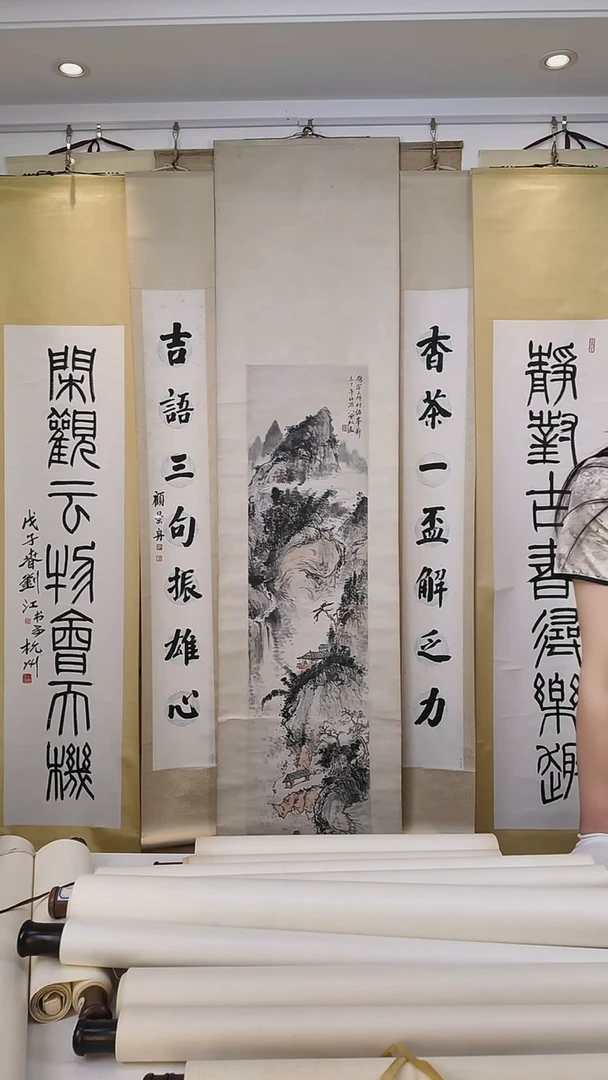 靜對古書尋樂趣
香茶一盃解乏力
吉語三句振雄心
顧景舟
閑觀云物會天機
戊子春劉江书于杭州